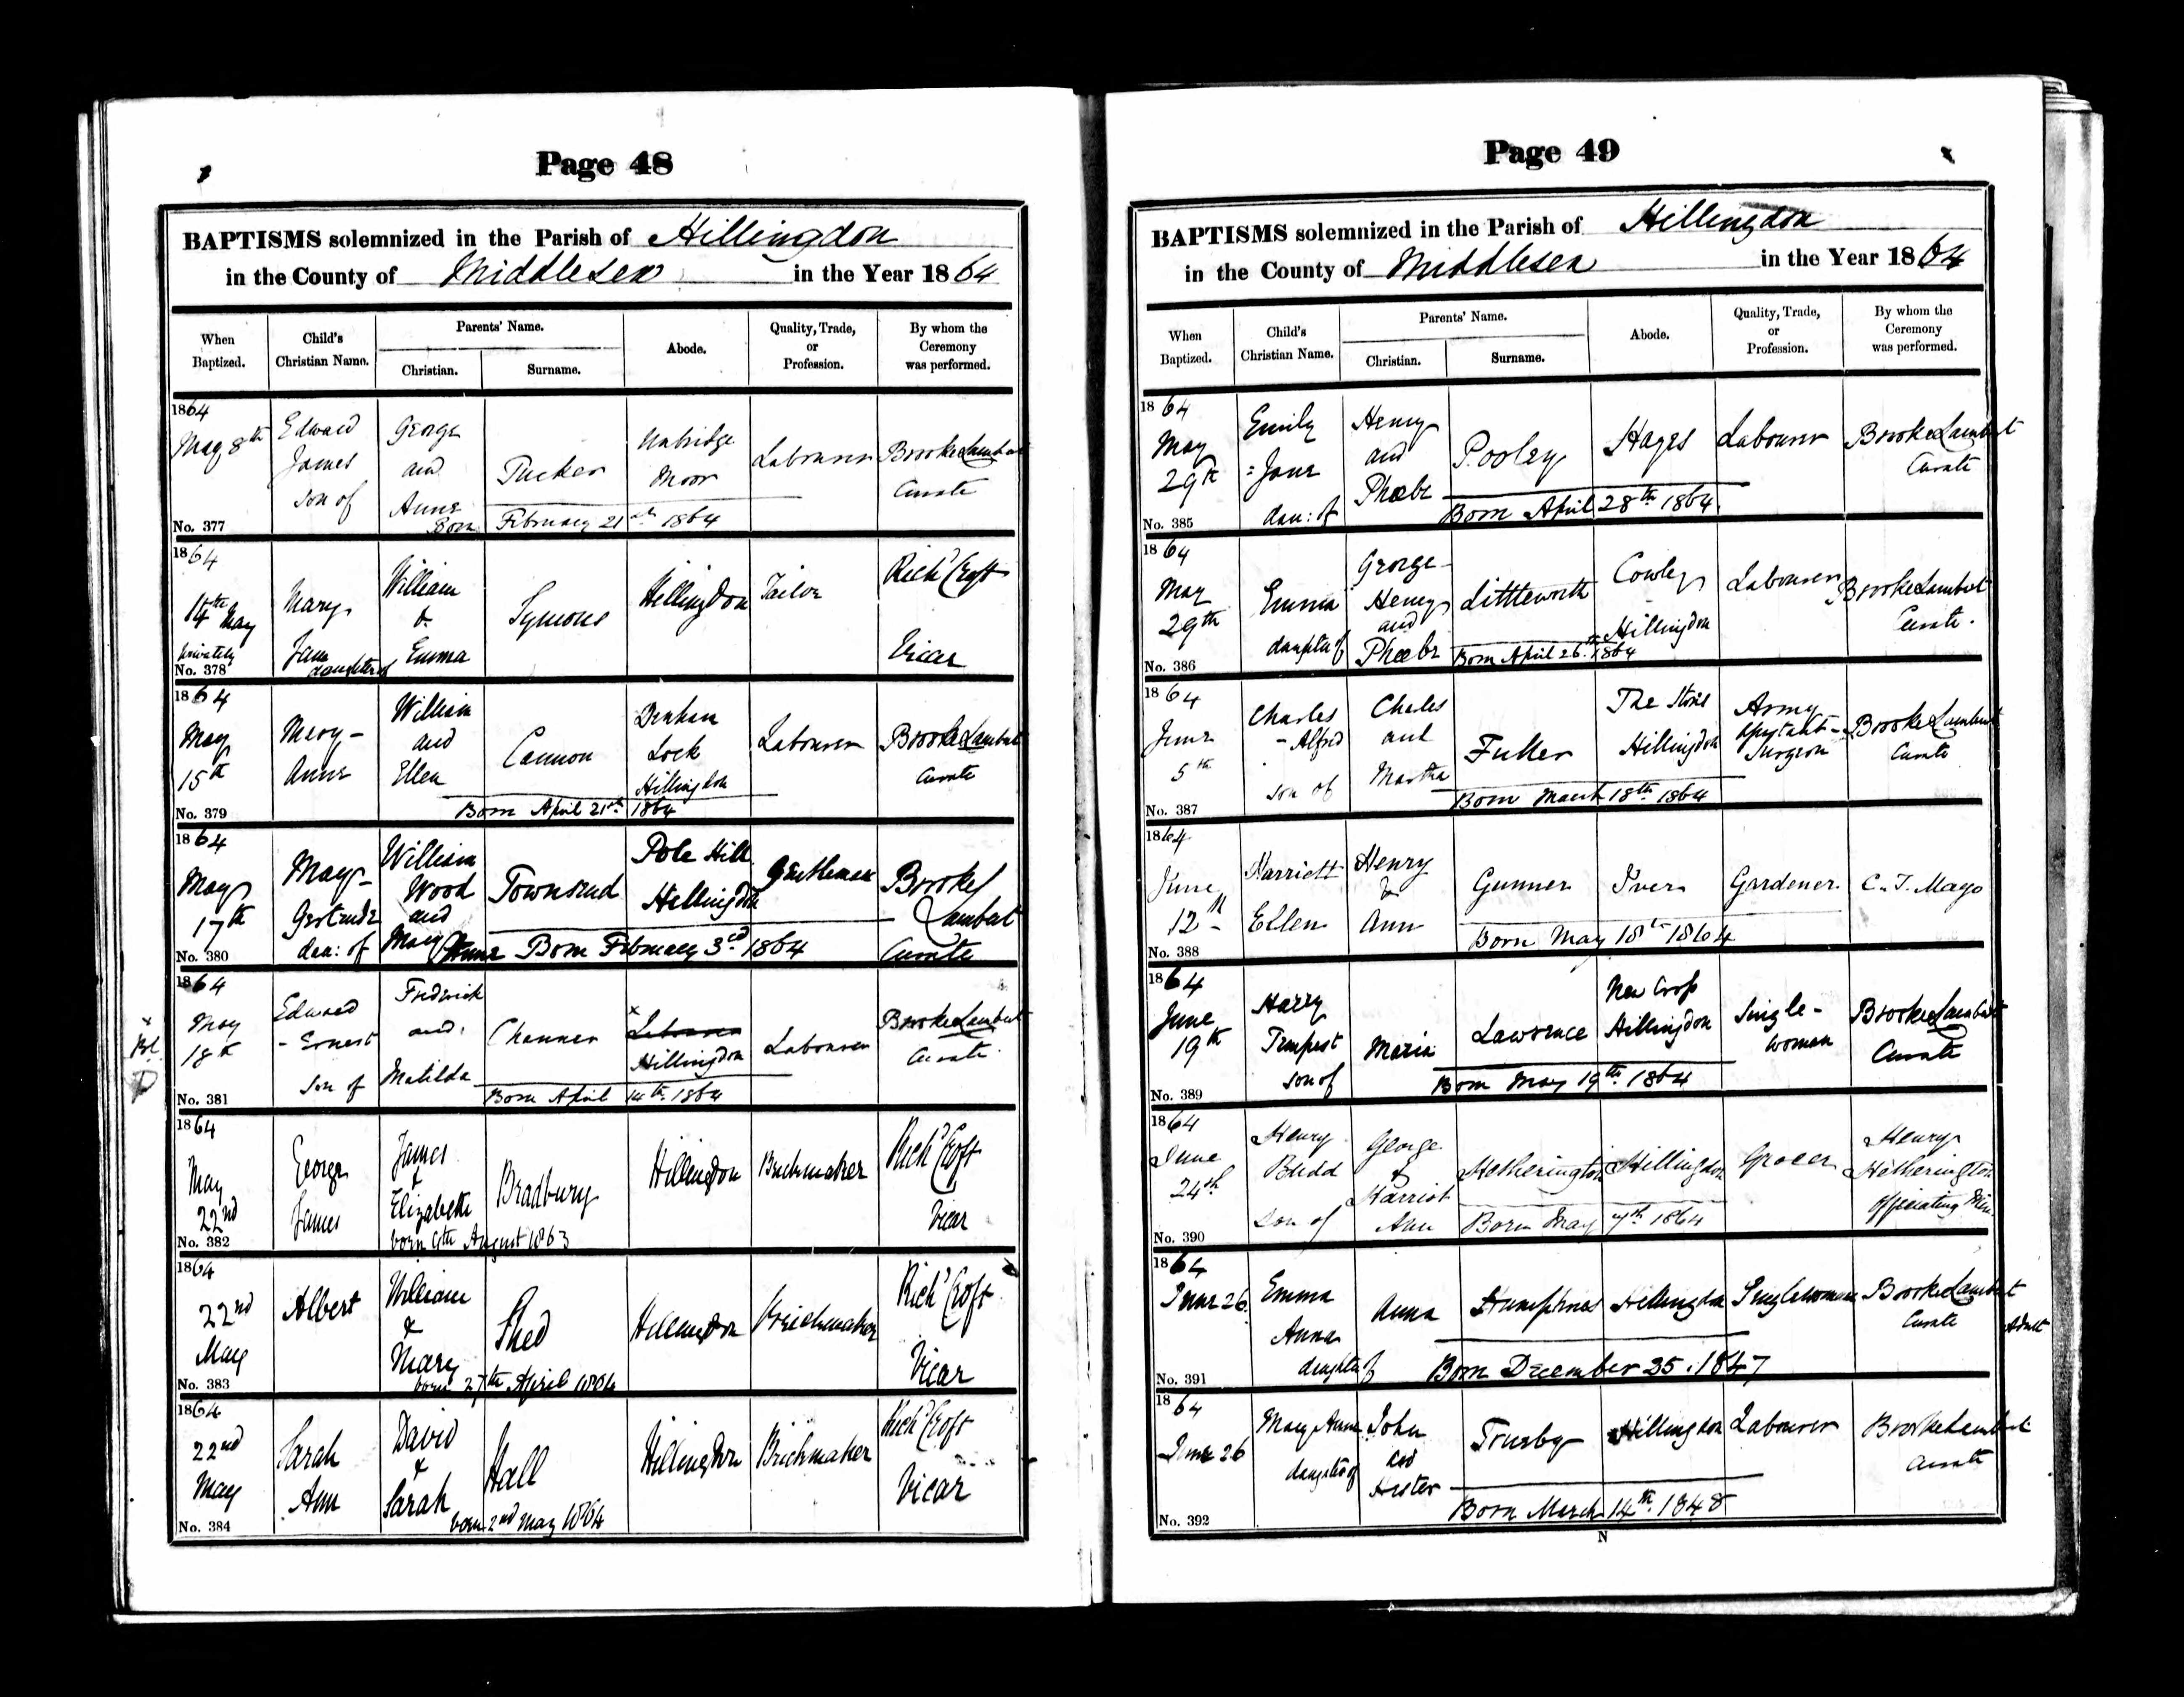 Page 48
BAPTISMS solemnized in the Parish of Hillingdon
in the County of Middlesex in the Year 1864
When Baptized. Child's Christian Name. Parents' Name. Christian. Surname. Abode. Quality, Trade, or Profession. By whom the Ceremony was performed.
1864 May 8th No. 377
Edward James son of
George and Anne
Tucker
Uxbridge Moor
Labourer
Brooke Lambert Curate
Born February 21st 1864
1864 14th May privately No. 378
Mary Jane daughter of
William & Emma
Symons
Hillingdon
Tailor
Richd Croft Vicar
1864 May 15th No. 379
Mary-Anne
William and Ellen
Cannon
Denham Lock Hillingdon
Labourer
Brooke Lambert Curate
Born April 21st 1864
1864 May 17th No. 380
May-Gertrude dau: of
William Wood and Mary Anne
Townsend
Pole Hill Hillingdon
Gentleman
Brooke Lambert Curate
Born February 3rd 1864
1864 May 18th No. 381
Edward-Ernest son of
Frederick and Matilda
Channer
x Labourer Hillingdon
Labourer
Brooke Lambert Curate
Born April 14th 1864
1864 May 22nd No. 382
George James
James & Elizabeth
Bradbury
Hillingdon
Brickmaker
Richd Croft Vicar
born 9th August 1863
1864 22nd May No. 383
Albert
William & Mary
Shed
Hillingdon
Brickmaker
Richd Croft Vicar
born 27th April 1864
1864 22nd May No. 384
Sarah Ann
David & Sarah
Hall
Hillingdon
Brickmaker
Richd Croft Vicar
born 2nd May 1864
Page 49
BAPTISMS solemnized in the Parish of Hillingdon
in the County of Middlesex in the Year 1864
When Baptized. Child's Christian Name. Parents' Name. Christian. Surname. Abode. Quality, Trade, or Profession. By whom the Ceremony was performed.
1864 May 29th No. 385
Emily =Jane dau: of
Henry and Phœbe
Pooley
Hayes
Labourer
Brooke Lambert Curate
Born April 28th 1864.
1864 May 29th No. 386
Emma daughter of
George-Henry and Phœbe
Littleworth
Cowley Hillingdon
Labourer
Brooke Lambert Curate.
Born April 26th 1864
1864 June 5th No. 387
Charles-Alfred son of
Charles and Martha
Fuller
The Hillingdon
Army Surgeon
Brooke Lambert Curate
Born March 18th 1864
1864 June 12th No. 388
Harriett Ellen
Henry & Ann
Gunner
Iver
Gardener
C. J. Mayo
Born May 18th 1864
1864 June 19th No. 389
Harry Tempest son of
Maria
Lawrence
New Cross Hillingdon
Single-woman
Brooke Lambert Curate
Born May 19th 1864
1864 June 24th No. 390
Henry Budd son of
George & Harriot Ann
Hetherington
Hillingdon
Grocer
Henry Hetherington Officiating Min.
Born May 7th 1864
1864 June 26 No. 391
Emma Anna daughter of
Anna
Humphries
Hillingdon
Singlewoman
Brooke Lambert Curate
Adult
Born December 25. 1847
1864 June 26 No. 392
Mary Anne daughter of
John and Hester
Trusby
Hillingdon
Labourer
Brooke Lambert Curate
Born March 14th 1848
N